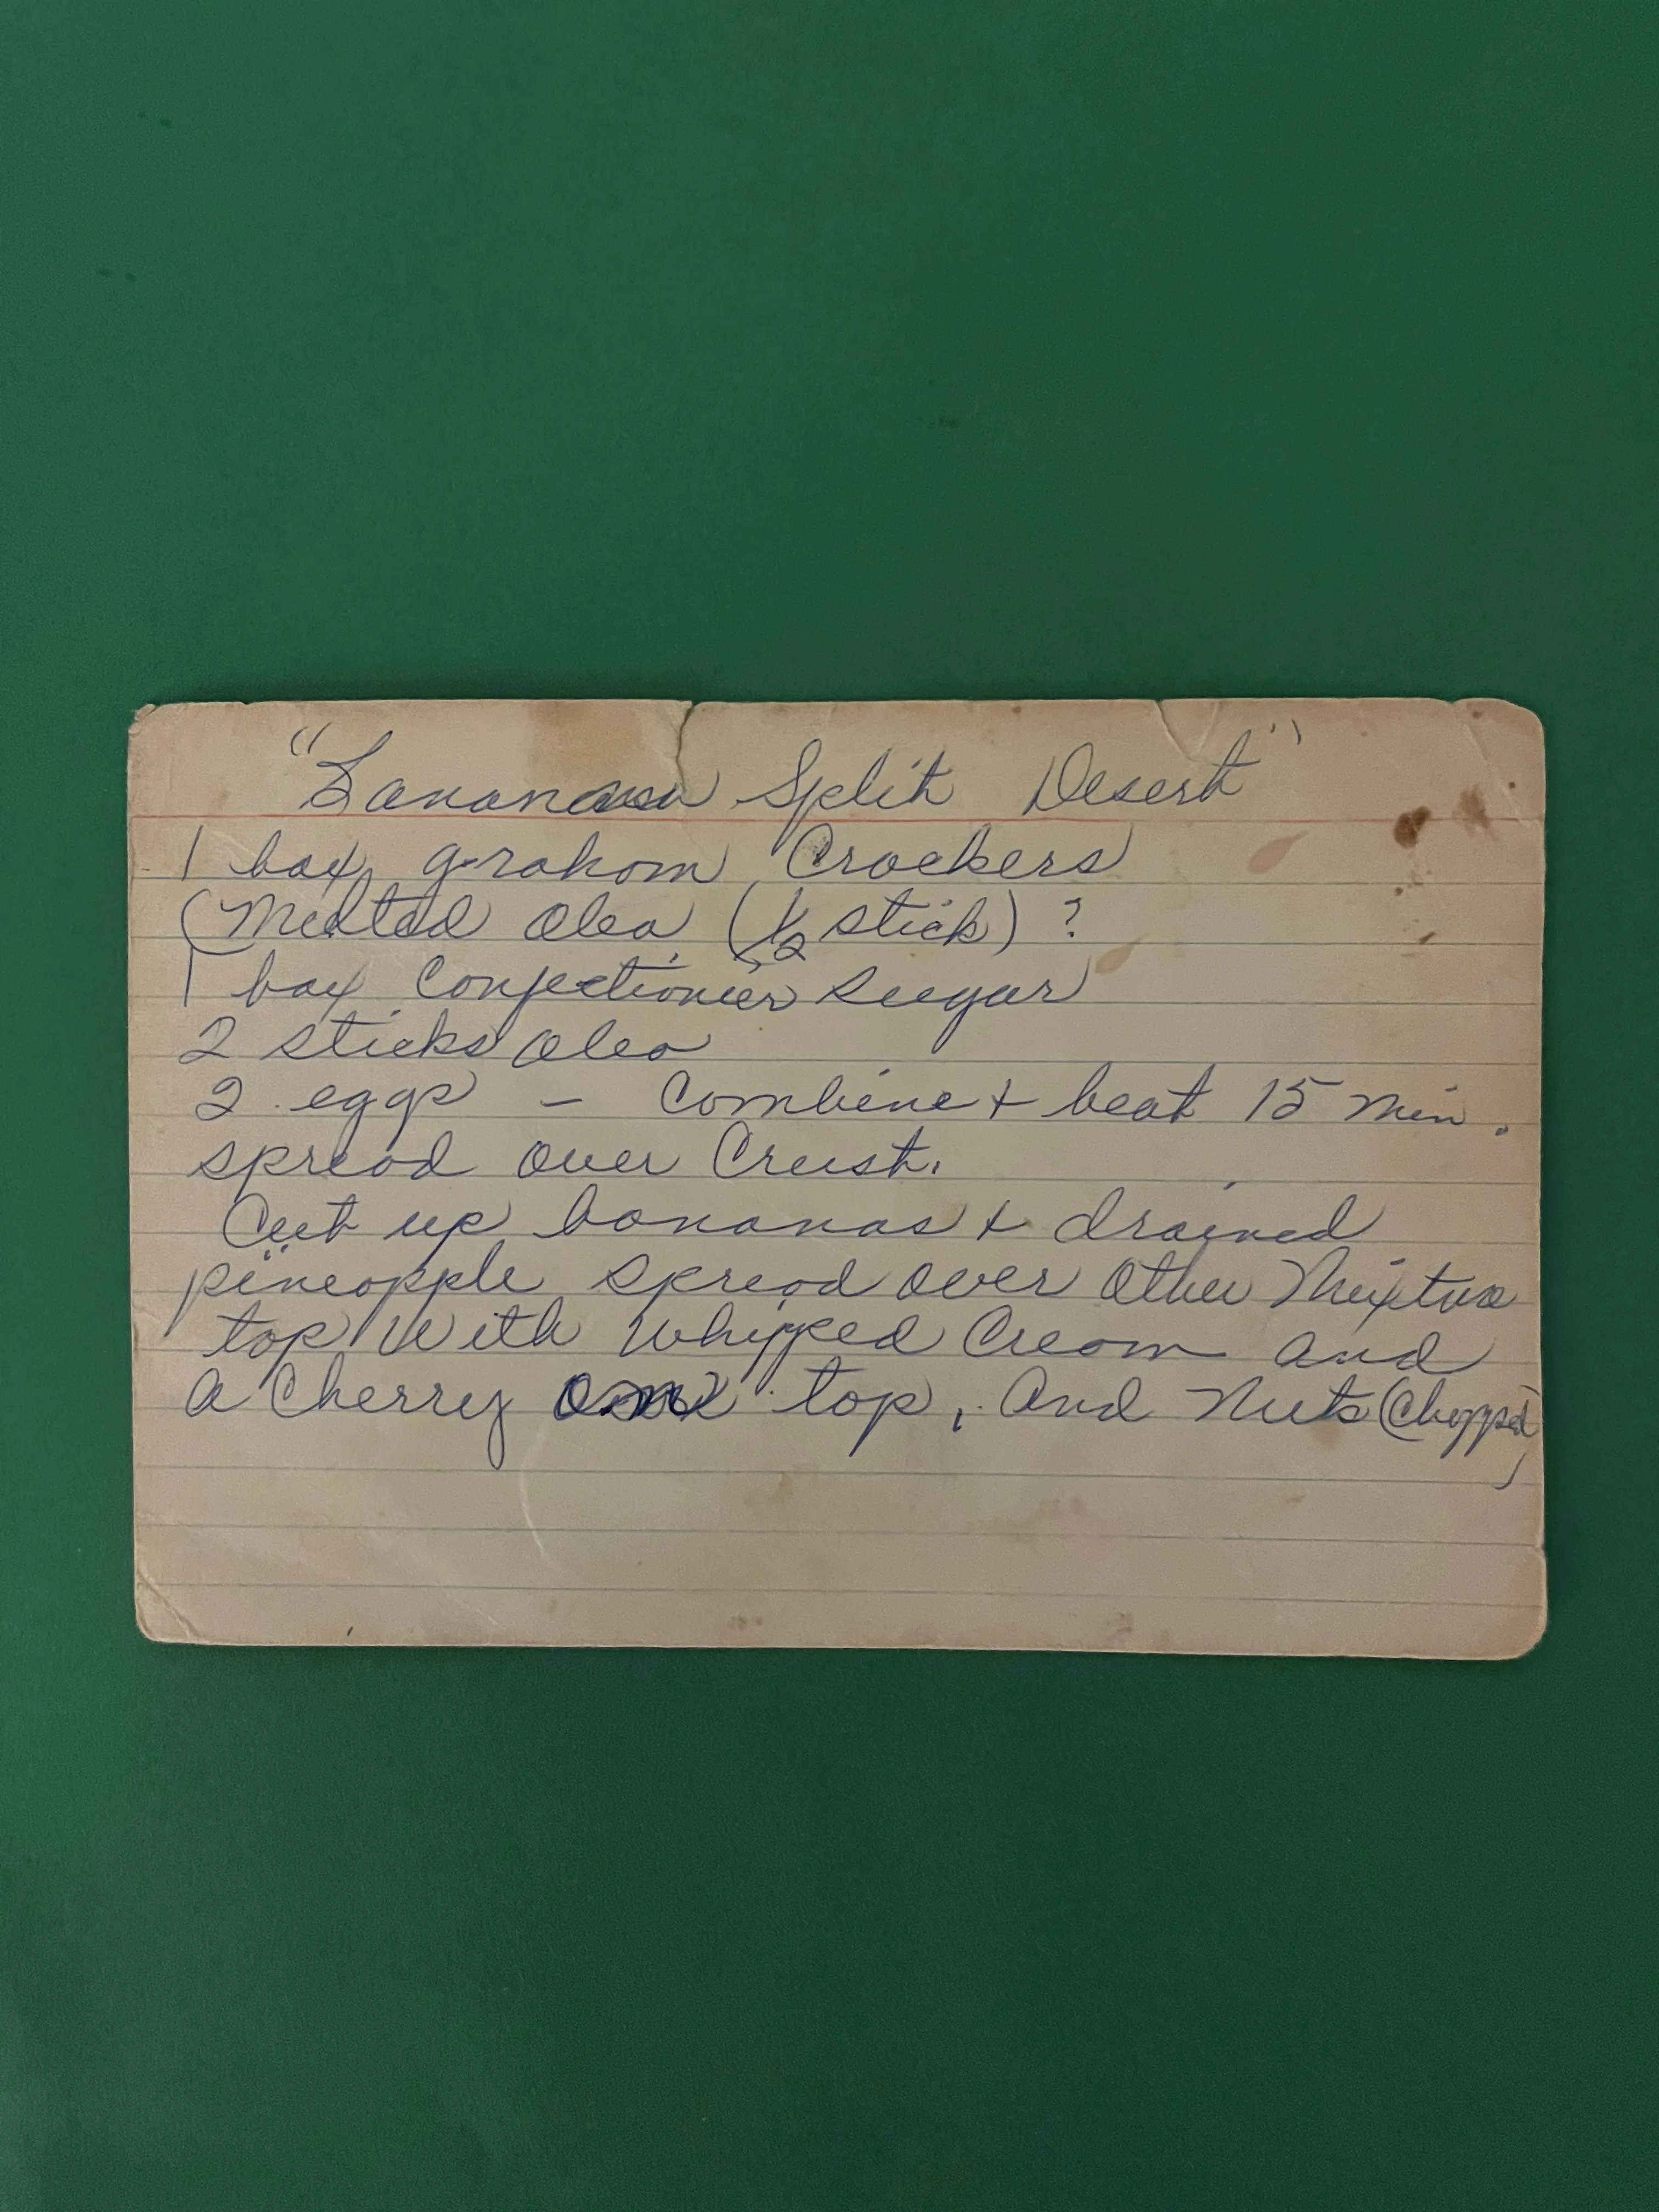 "Banana Split Desert"
1 box graham Crackers
(Melted Oleo (1/2 stick) ?
1 box Confectioner Sugar
2 sticks Oleo
2 eggs - Combine + beat 15 min.
spread over Crust.
Cut up bananas + drained
pineapple spread over other Mixture
top With Whipped Cream and
a Cherry on top, And Nuts (Chopped)